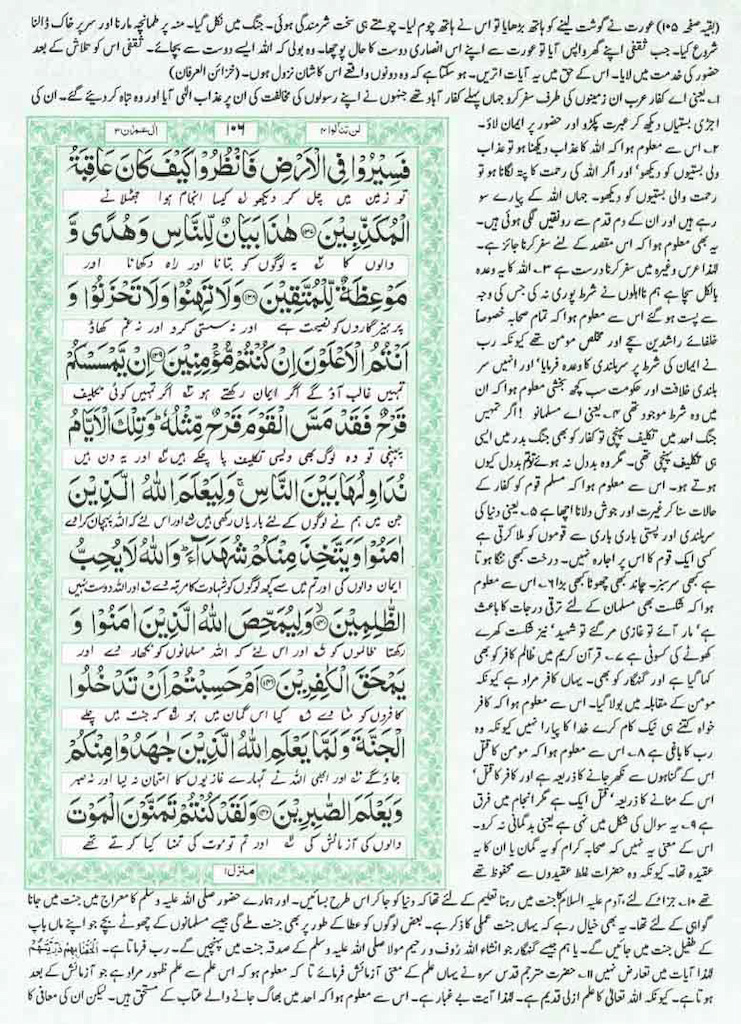 (بقیہ صفحہ ۱۰۵) عورت نے گوشت لینے کو ہاتھ بڑھایا تو اس نے ہاتھ چوم لیا۔ چومتے ہی سخت شرمندگی ہوئی۔ جنگل میں نکل گیا۔ منہ پر طمانچہ مارنا اور سر پر خاک ڈالنا
شروع کیا۔ جب ثقفی اپنے گھر واپس آیا تو عورت سے اپنے اس انصاری دوست کا حال پوچھا۔ وہ بولی کہ اللہ ایسے دوست سے بچائے۔ ثقفی اس کو تلاش کے بعد
حضور کی خدمت میں لایا۔ اس کے حق میں یہ آیات اتریں۔ ہو سکتا ہے کہ وہ دونوں واقعے اس کا شان نزول ہوں۔ (خزائن العرفان)
۱۔ یعنی اے کفار عرب ان زمینوں کی طرف سفر کرو جہاں پہلے کفار آباد تھے جنہوں نے اپنے رسولوں کی مخالفت کی ان پر عذاب الٰہی آیا اور وہ تباہ کر دیئے گئے۔ ان کی
اجڑی بستیاں دیکھ کر عبرت پکڑو اور حضور پر ایمان لاؤ۔
۲۔ اس سے معلوم ہوا کہ اللہ کا عذاب دیکھنا ہو تو عذاب
ولی بستیوں کو دیکھو' اور اگر اللہ کی رحمت کا پتہ لگانا ہو تو
رحمت والی بستیوں کو دیکھو۔ جہاں اللہ کے پیارے سو
رہے ہیں اور ان کے دم قدم سے رونقیں لگی ہوئی ہیں۔
یہ بھی معلوم ہوا کہ اس مقصد کے لئے سفر کرنا جائز ہے۔
لہٰذا عرس وغیرہ میں سفر کرنا درست ہے ۳۔ اللہ کا یہ وعدہ
بالکل سچا ہے ہم نااہلوں نے شرط پوری نہ کی جس کی وجہ
سے پست ہو گئے اس سے معلوم ہوا کہ تمام صحابہ خصوصاً
خلفائے راشدین سچے اور مخلص مومن تھے کیونکہ رب
نے ایمان کی شرط پر سربلندی کا وعدہ فرمایا' اور انہیں سر
بلندی خلافت اور حکومت سب کچھ بخشی معلوم ہوا کہ ان
میں وہ شرط موجود تھی ۴۔ یعنی اے مسلمانو! اگر تمہیں
جنگ احد میں تکلیف پہنچی تو کفار کو بھی جنگ بدر میں ایسی
ہی تکلیف پہنچی تھی۔ مگر وہ بددل نہ ہوئے تم بددل کیوں
ہوتے ہو۔ اس سے معلوم ہوا کہ مسلم قوم کو کفار کے
حالات سنا کر غیرت اور جوش دلانا اچھا ہے ۵۔ یعنی دنیا کی
سربلندی اور پستی باری باری سے قوموں کو ملا کرتی ہے
کسی ایک قوم کا اس پر اجارہ نہیں۔ درخت کبھی ننگا ہوتا
ہے کبھی سرسبز۔ چاند کبھی چھوٹا کبھی بڑا ۶۔ اس سے معلوم
ہوا کہ شکست بھی مسلمان کے لئے ترقی درجات کا باعث
ہے' مار آئے تو غازی مر گئے تو شہید' نیز شکست کھرے
کھوٹے کی کسوٹی ہے ۷۔ قرآن کریم میں ظالم کافر کو بھی
کہا گیا ہے اور گنہگار کو بھی۔ یہاں کافر مراد ہے کیونکہ
مومن کے مقابلہ میں بولا گیا۔ اس سے معلوم ہوا کہ کافر
خواہ کتنے ہی نیک کام کرے خدا کا پیارا نہیں کیونکہ وہ
رب کا باغی ہے ۸۔ اس سے معلوم ہوا کہ مومن کا قتل
اس کے گناہوں سے نکھر جانے کا ذریعہ ہے اور کافر کا قتل'
اس کے مٹانے کا ذریعہ' قتل ایک ہے مگر انجام میں فرق
ہے ۹۔ یہ سوال کی شکل میں نہی ہے یعنی بدگمانی نہ کرو۔
اس کے معنی یہ نہیں کہ صحابہ کرام کو یہ گمان یا ان کا یہ
عقیدہ تھا۔ کیونکہ وہ حضرات غلط عقیدوں سے محفوظ تھے
لن تنالوا ۴ ۱۰۶ اٰل عمران ۳
فَسِيْرُوْا فِي الْاَرْضِ فَانْظُرُوْا كَيْفَ كَانَ عَاقِبَةُ
تو زمین میں چل کر دیکھو کیسا انجام ہوا جھٹلانے
الْمُكَذِّبِيْنَ ۝۱۳۷ هٰذَا بَيَانٌ لِّلنَّاسِ وَهُدًى وَّ
والوں کا یہ لوگوں کو بتانا اور راہ دکھانا اور
مَوْعِظَةٌ لِّلْمُتَّقِيْنَ ۝۱۳۸ وَلَا تَهِنُوْا وَلَا تَحْزَنُوْا وَ
پرہیزگاروں کو نصیحت ہے اور نہ سستی کرو اور نہ غم کھاؤ
اَنْتُمُ الْاَعْلَوْنَ اِنْ كُنْتُمْ مُّؤْمِنِيْنَ ۝۱۳۹ اِنْ يَّمْسَسْكُمْ
تمہیں غالب آؤ گے اگر ایمان رکھتے ہو اگر تمہیں کوئی تکلیف
قَرْحٌ فَقَدْ مَسَّ الْقَوْمَ قَرْحٌ مِّثْلُهٗ ؕ وَتِلْكَ الْاَيَّامُ
پہنچی تو وہ لوگ بھی ویسی تکلیف پا چکے ہیں اور یہ دن ہیں
نُدَاوِلُهَا بَيْنَ النَّاسِ ۚ وَلِيَعْلَمَ اللّٰهُ الَّذِيْنَ
جن میں ہم نے لوگوں کے لئے باریاں رکھی ہیں اور اس لئے کہ اللہ پہچان کرا دے
اٰمَنُوْا وَيَتَّخِذَ مِنْكُمْ شُهَدَآءَ ؕ وَاللّٰهُ لَا يُحِبُّ
ایمان والوں کی اور تم میں سے کچھ لوگوں کو شہادت کا مرتبہ دے اور اللہ دوست نہیں
الظّٰلِمِيْنَ ۝۱۴۰ وَلِيُمَحِّصَ اللّٰهُ الَّذِيْنَ اٰمَنُوْا وَ
رکھتا ظالموں کو اور اس لئے کہ اللہ مسلمانوں کو نکھار دے اور
يَمْحَقَ الْكٰفِرِيْنَ ۝۱۴۱ اَمْ حَسِبْتُمْ اَنْ تَدْخُلُوا
کافروں کو مٹا دے کیا اس گمان میں ہو کہ جنت میں چلے
الْجَنَّةَ وَلَمَّا يَعْلَمِ اللّٰهُ الَّذِيْنَ جٰهَدُوْا مِنْكُمْ
جاؤ گے اور ابھی اللہ نے تمہارے غازیوں کا امتحان نہ لیا اور نہ صبر
وَيَعْلَمَ الصّٰبِرِيْنَ ۝۱۴۲ وَلَقَدْ كُنْتُمْ تَمَنَّوْنَ الْمَوْتَ
والوں کی آزمائش کی اور تم تو موت کی تمنا کیا کرتے تھے
منزل ۱
تھے ۱۰۔ جزا کے لئے، آدم علیہ السلام کا جنت میں رہنا تعلیم کے لئے تھا کہ دنیا کو جا کر اس طرح بسائیں۔ اور ہمارے حضور صلی اللہ علیہ وسلم کا معراج میں جنت میں جانا
گواہی کے لئے تھا۔ یہ بھی خیال رہے کہ یہاں جنت عملی کا ذکر ہے۔ بعض لوگوں کو عطا کے طور پر بھی جنت ملے گی جیسے مسلمانوں کے چھوٹے بچے جو اپنے ماں باپ
کے طفیل جنت میں جائیں گے۔ یا ہم جیسے گنہگار جو انشاء اللہ رؤف و رحیم مولا صلی اللہ علیہ وسلم کے صدقہ جنت میں پہنچیں گے۔ رب فرماتا ہے۔ اَلْحَقْنَا بِهِمْ ذُرِّيَّتَهُمْ
لہٰذا آیات میں تعارض نہیں ۱۱۔ حضرت مترجم قدس سرہ نے یہاں علم کے معنی آزمائش فرمائے تا کہ معلوم ہو کہ اس علم سے علم ظہور مراد ہے جو آزمائش کے بعد
ہوتا ہے۔ کیونکہ اللہ تعالیٰ کا علم ازلی قدیم ہے۔ لہٰذا آیت بے غبار ہے۔ اس سے معلوم ہوا کہ احد میں بھاگ جانے والے عتاب کے مستحق ہیں۔ لیکن ان کی معافی کا